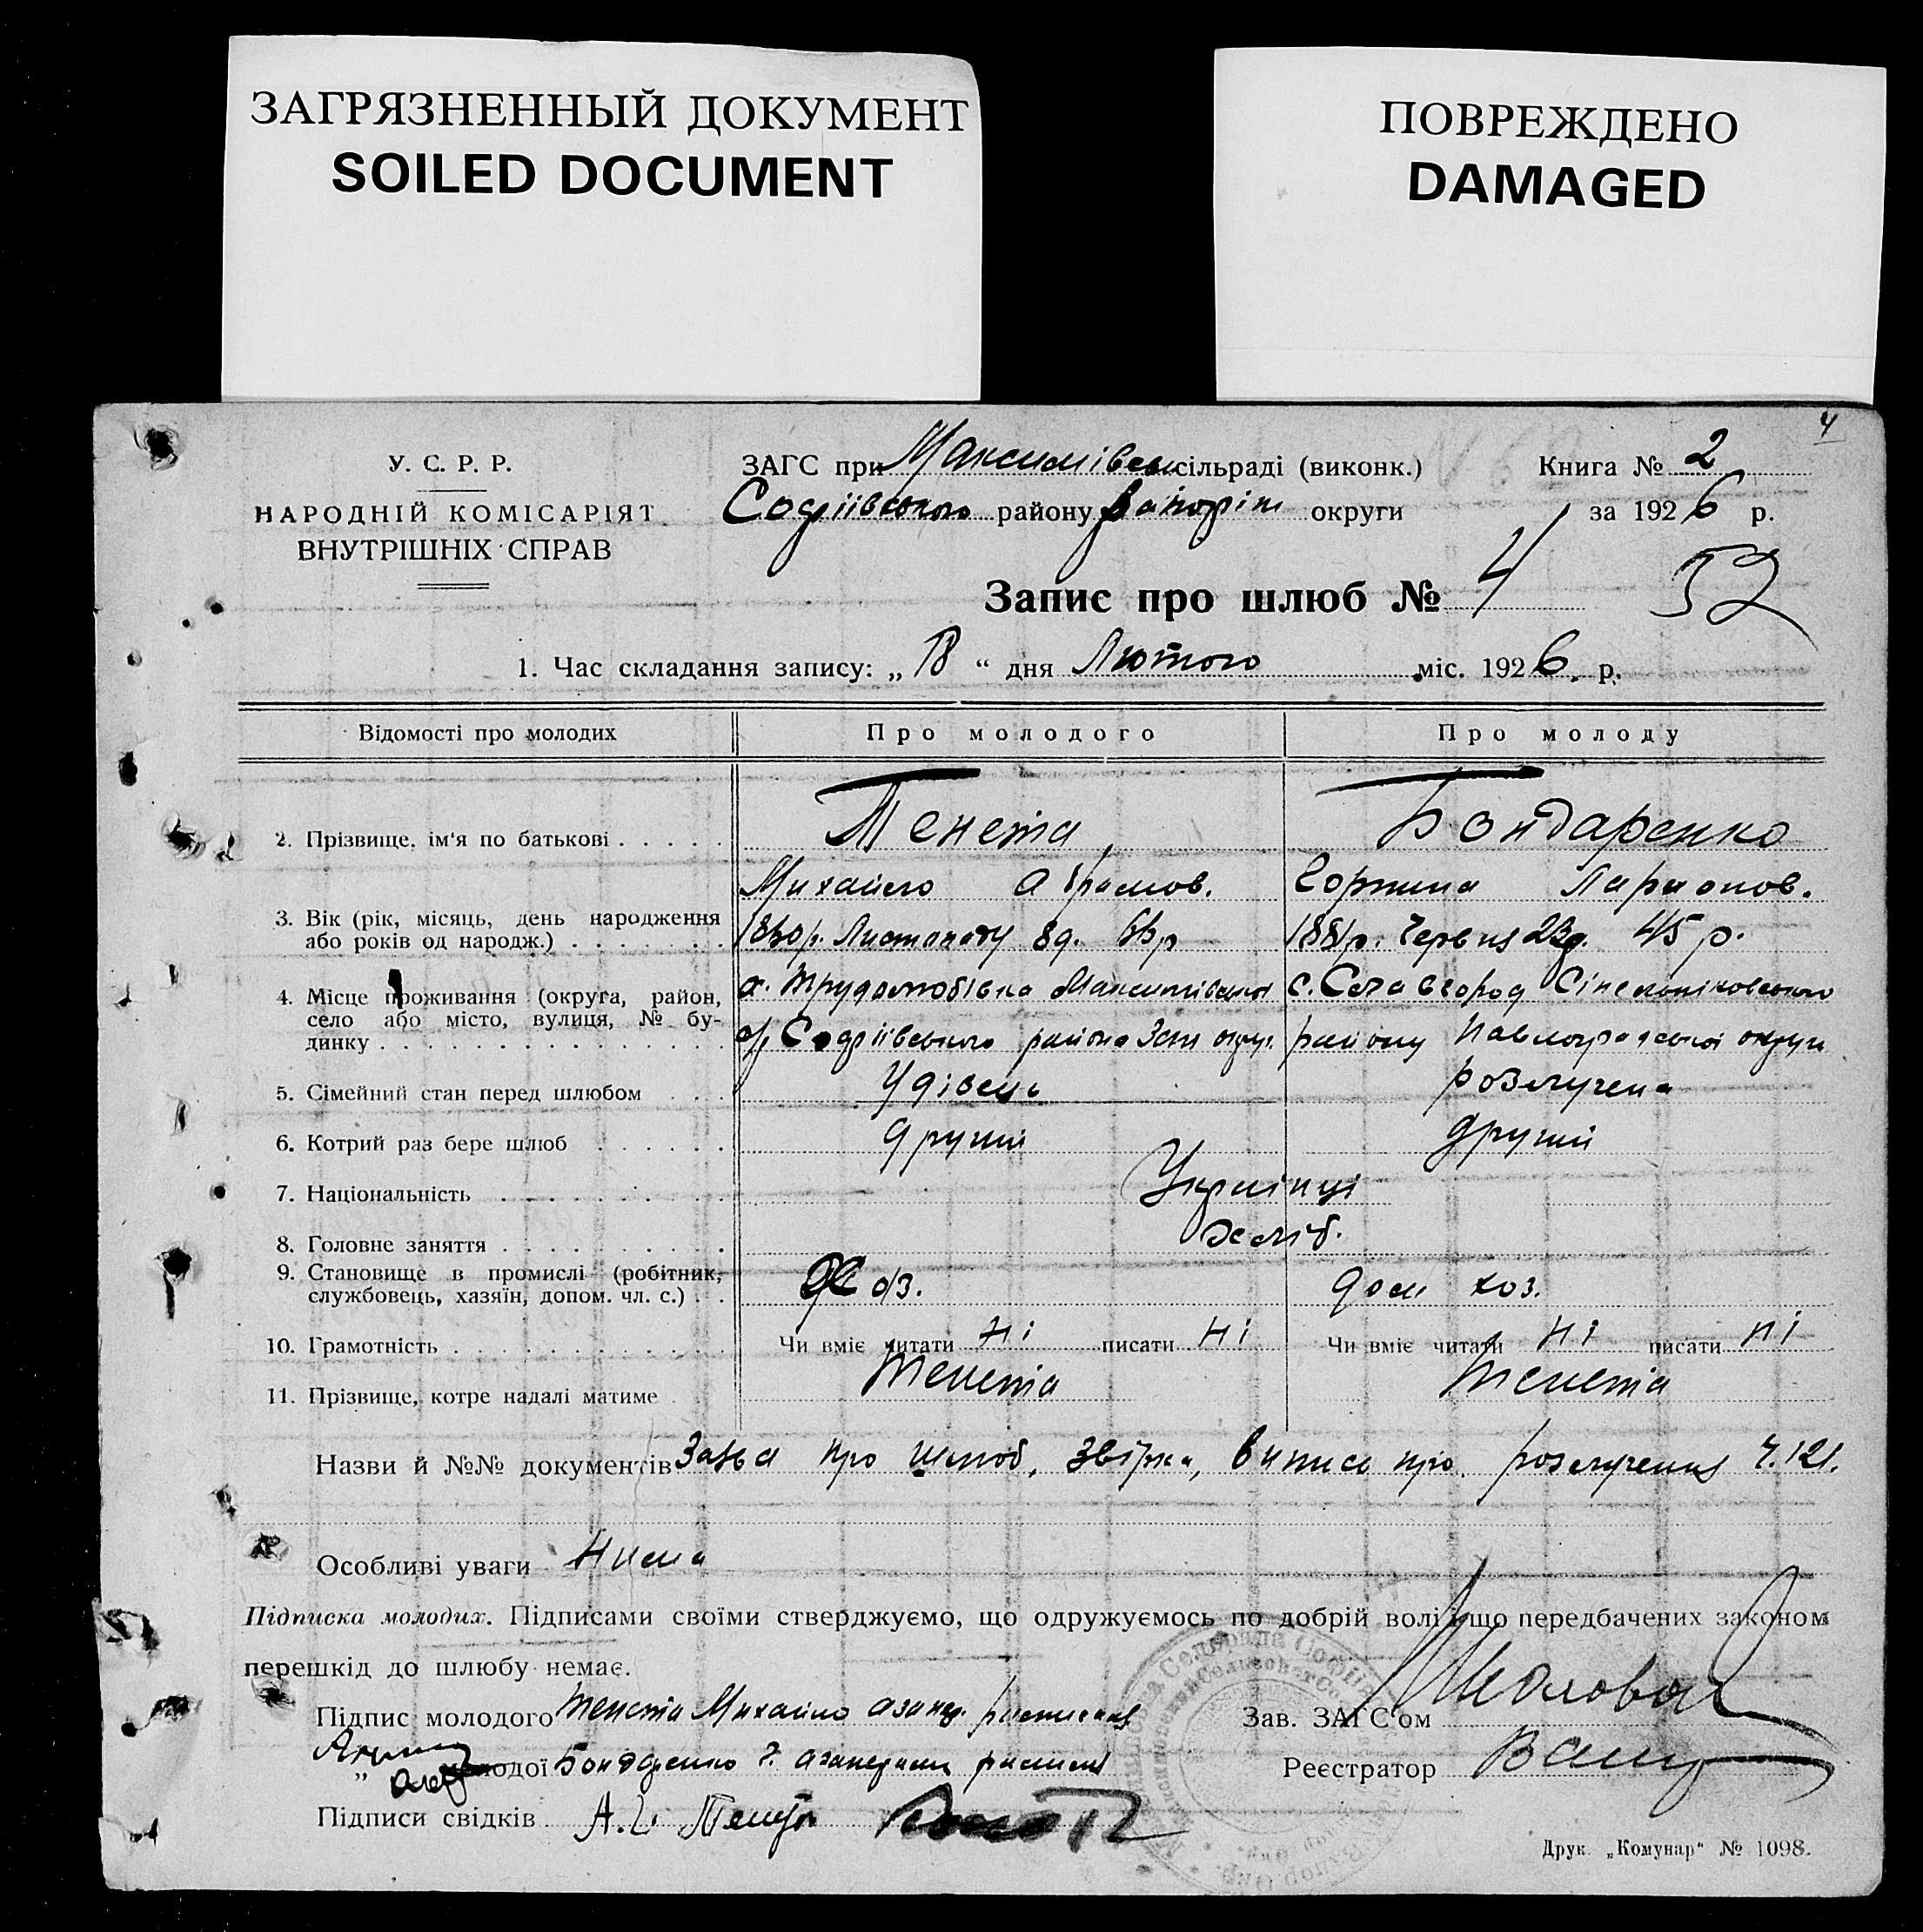 ЗАГРЯЗНЕННЫЙ ДОКУМЕНТ
SOILED DOCUMENT
ПОВРЕЖДЕНО
DAMAGED
4
У. С. Р. Р.
НАРОДНІЙ КОМІСАРІЯТ
ВНУТРІШНІХ СПРАВ
ЗАГС при Максимівськ сільраді (виконк.)
Книга № 2
Софіівського району Запоріж округи
за 1926 р.
Запис про шлюб № 4
52
1. Час складання запису: „18“ дня Лютого міс. 1926 р.
Відомості про молодих
Про молодого
Про молоду
2. Прізвище, ім'я по батькові
Тенета
Бондаренко
Михайло Абрамов.
Горпина Ларионов.
3. Вік (рік, місяць, день народження
або років од народж.)
Листопаду 8д.
1881р. Червня 23д. 45 р.
4. Місце проживання (округа, район,
село або місто, вулиця, № бу-
динку
х. Трудолюбівка Максимівської
с/р Софіівського района Зап округ.
с. Славгород Сінельніковського
району Павлоградської округи
5. Сімейний стан перед шлюбом
Удівець
розлучена
6. Котрий раз бере шлюб
другий
другий
7. Національність
Українці
8. Головне заняття
хліб.
9. Становище в промислі (робітник,
службовець, хазяїн, допом. чл. с.)
оз.
дом хоз.
10. Грамотність
Чи вміє читати Ні писати Ні
Чи вміє читати Ні писати Ні
11. Прізвище, котре надалі матиме
Тенета
Тенета
Назви й №№ документів Заява про шлюб, звірка, випись про розлучення Ч. 121.
Особливі уваги Нима
Підписка молодих. Підписами своїми стверджуємо, що одружуємось по добрій волі і що передбачених законом
перешкід до шлюбу немає.
Підпис молодого Тенета Михайло
Зав. ЗАГС'ом
„ молодої Бондаренко Г.
Реєстратор
Підписи свідків
Друк. „Комунар“ № 1098.